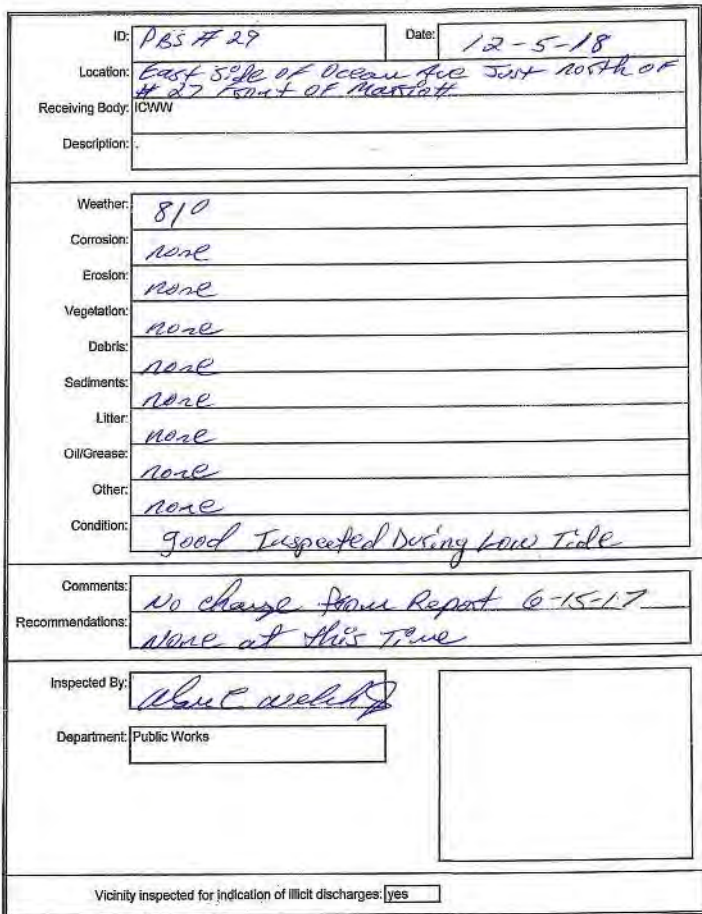 ID: PBS # 29 Date: 12-5-18
Location: East side of Ocean Ave Just North of
# 27 Front of Marriott
Receiving Body: ICWW
Description: .
Weather: 81°
Corrosion: none
Erosion: none
Vegetation: none
Debris: none
Sediments: none
Litter: none
Oil/Grease: none
Other: none
Condition: good Inspected During Low Tide
Comments: No change from Report 6-15-17
Recommendations: None at this Time
Inspected By: Welch
Department: Public Works
Vicinity inspected for indication of illicit discharges: yes